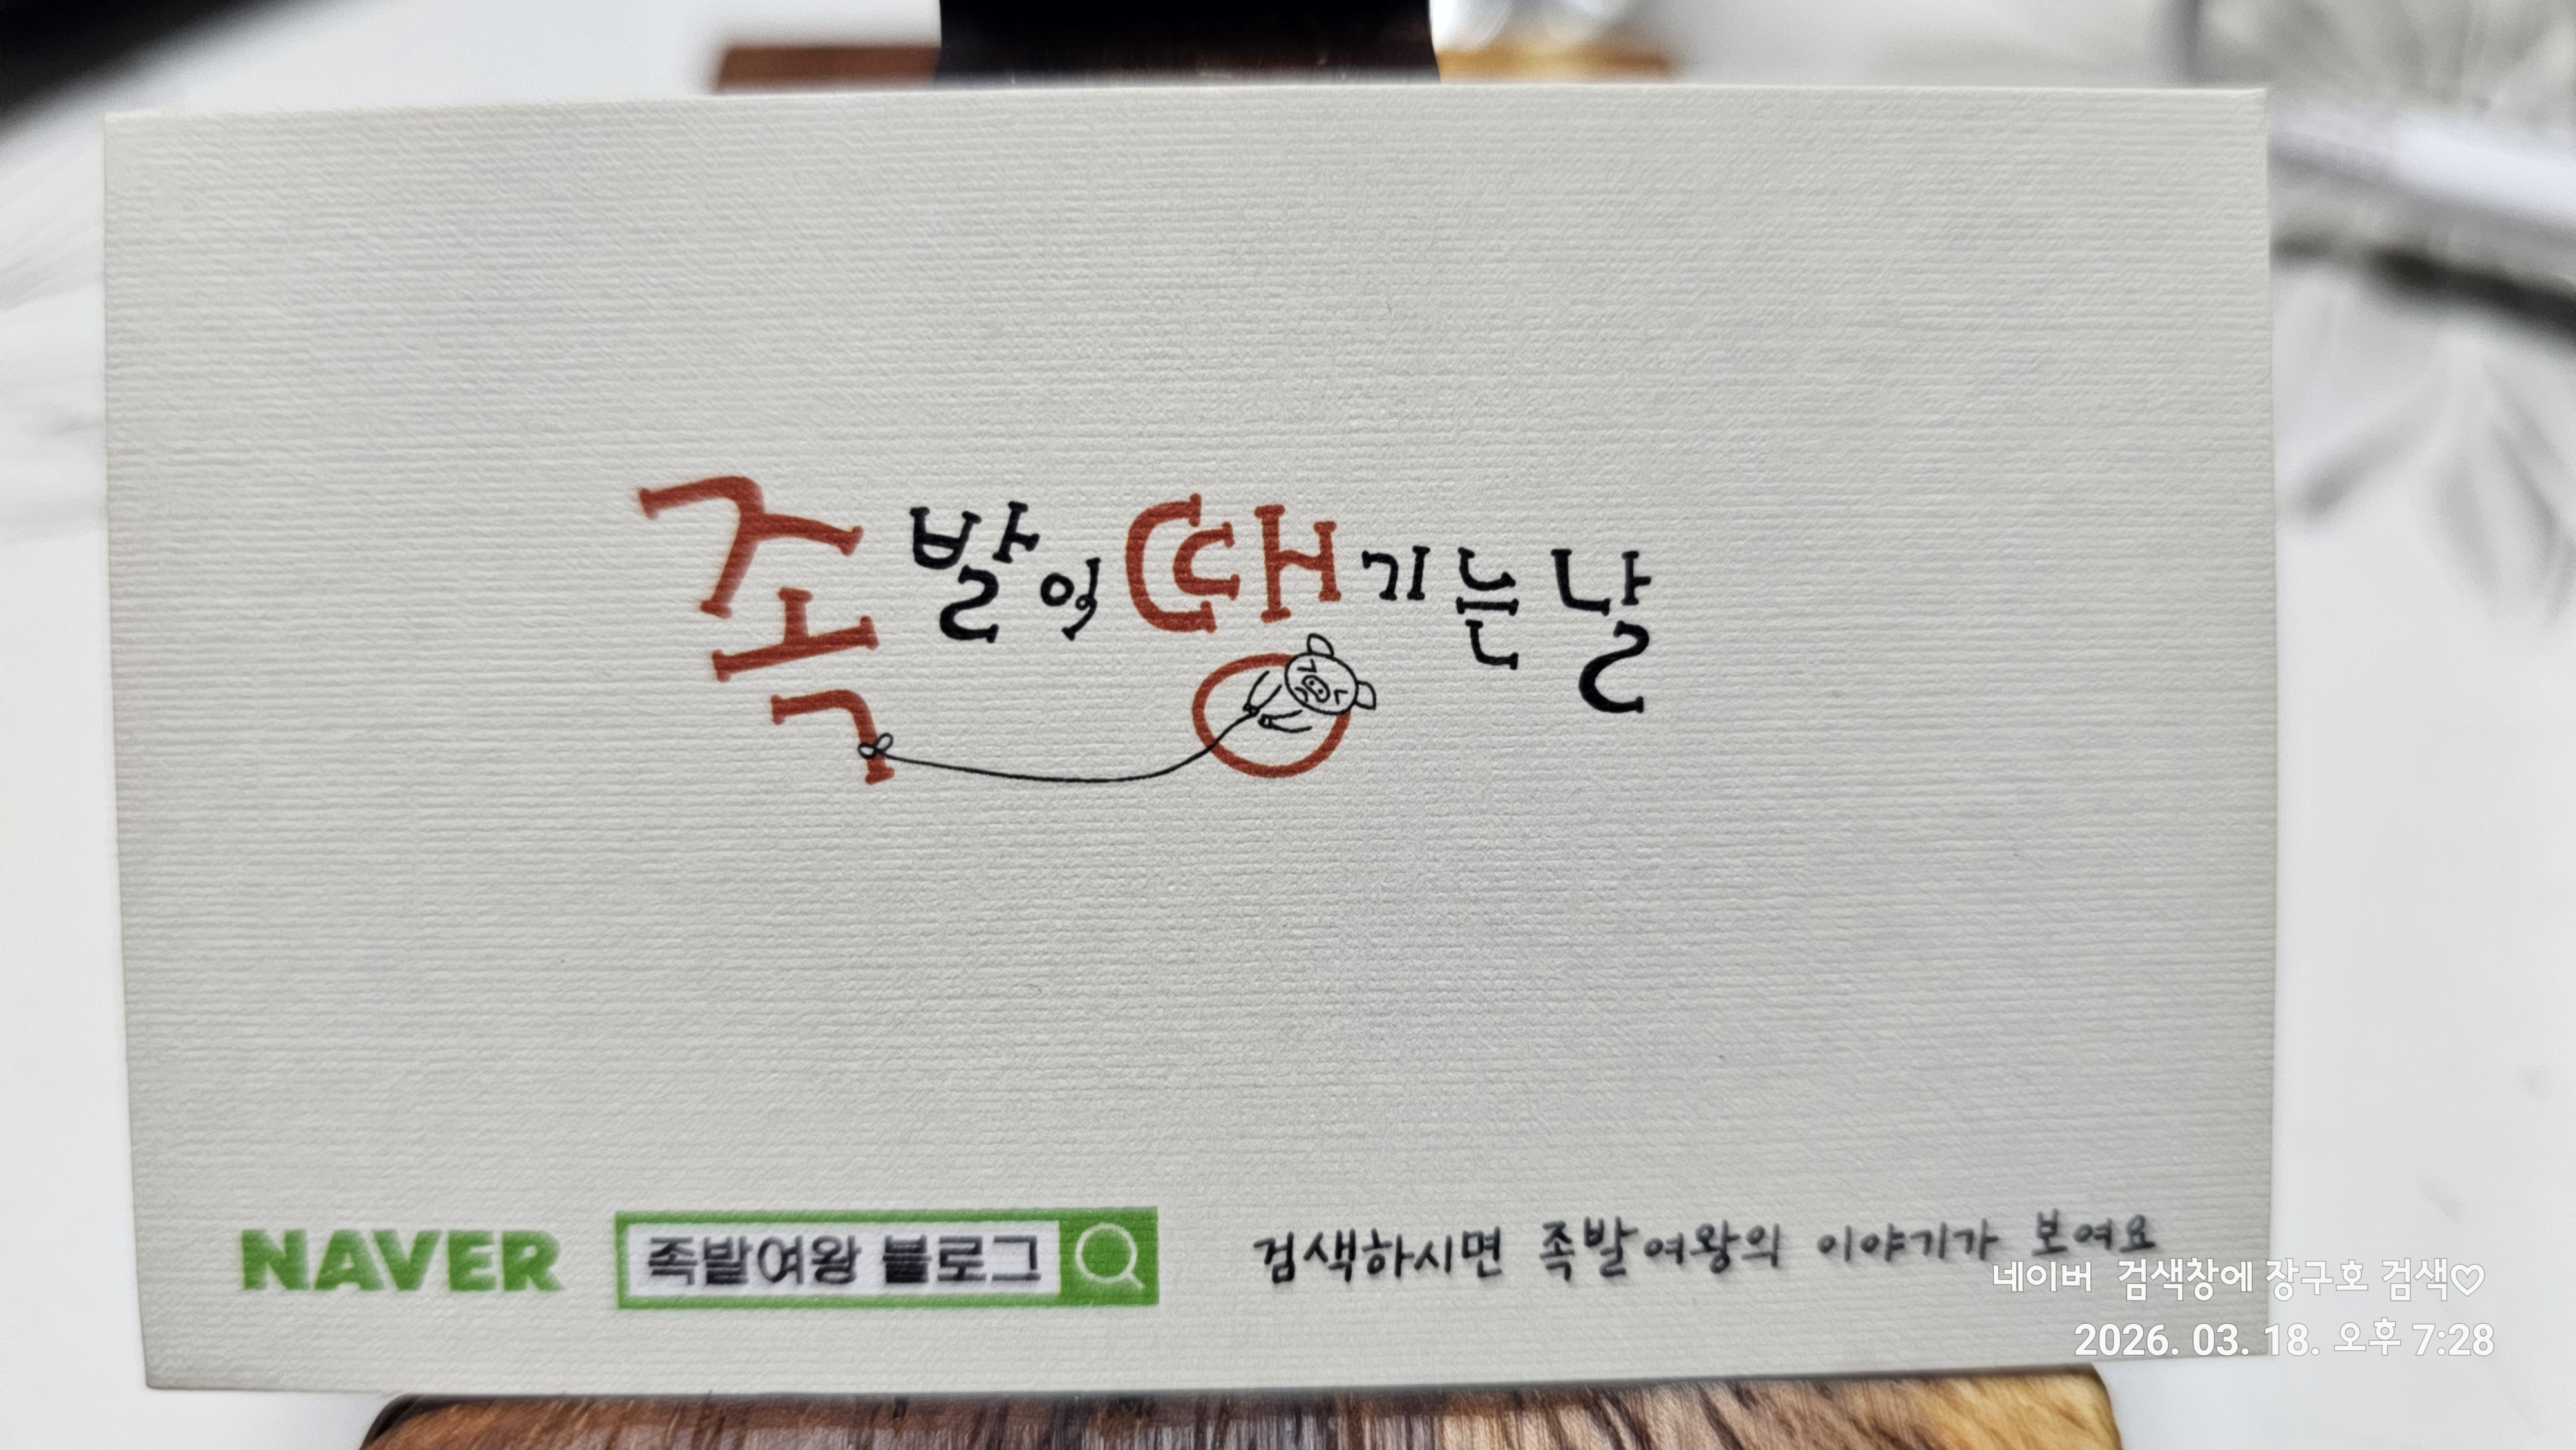 족발이 땡기는 날
NAVER 족발여왕 블로그 검색하시면 족발여왕의 이야기가 보여요
네이버 검색창에 장구호 검색♡
2026. 03. 18. 오후 7:28